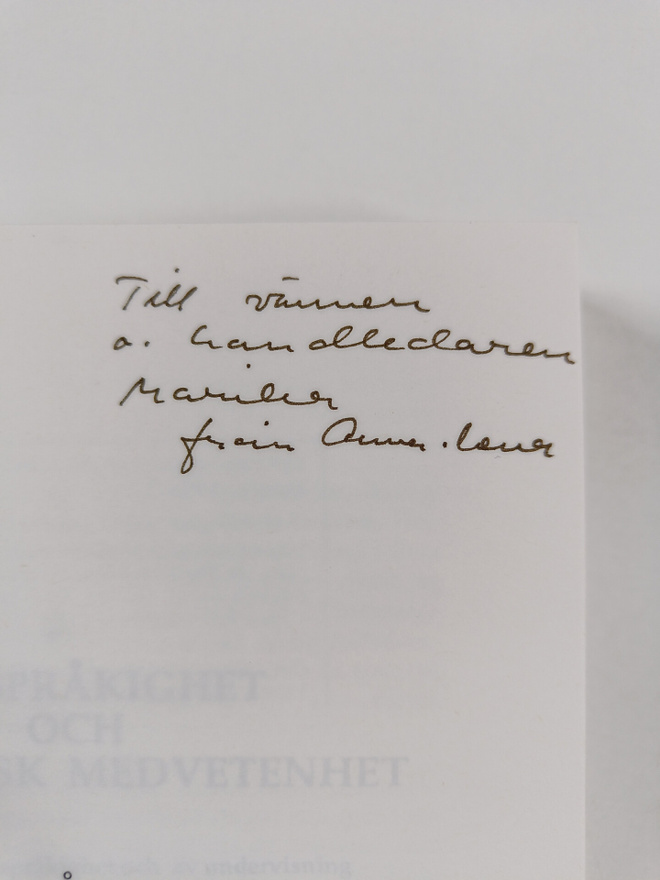 Till vännen
o. handledaren
Marika
från Anna-Lena
SPRÅKIGHET
OCH
SK MEDVETENHET
undervisning